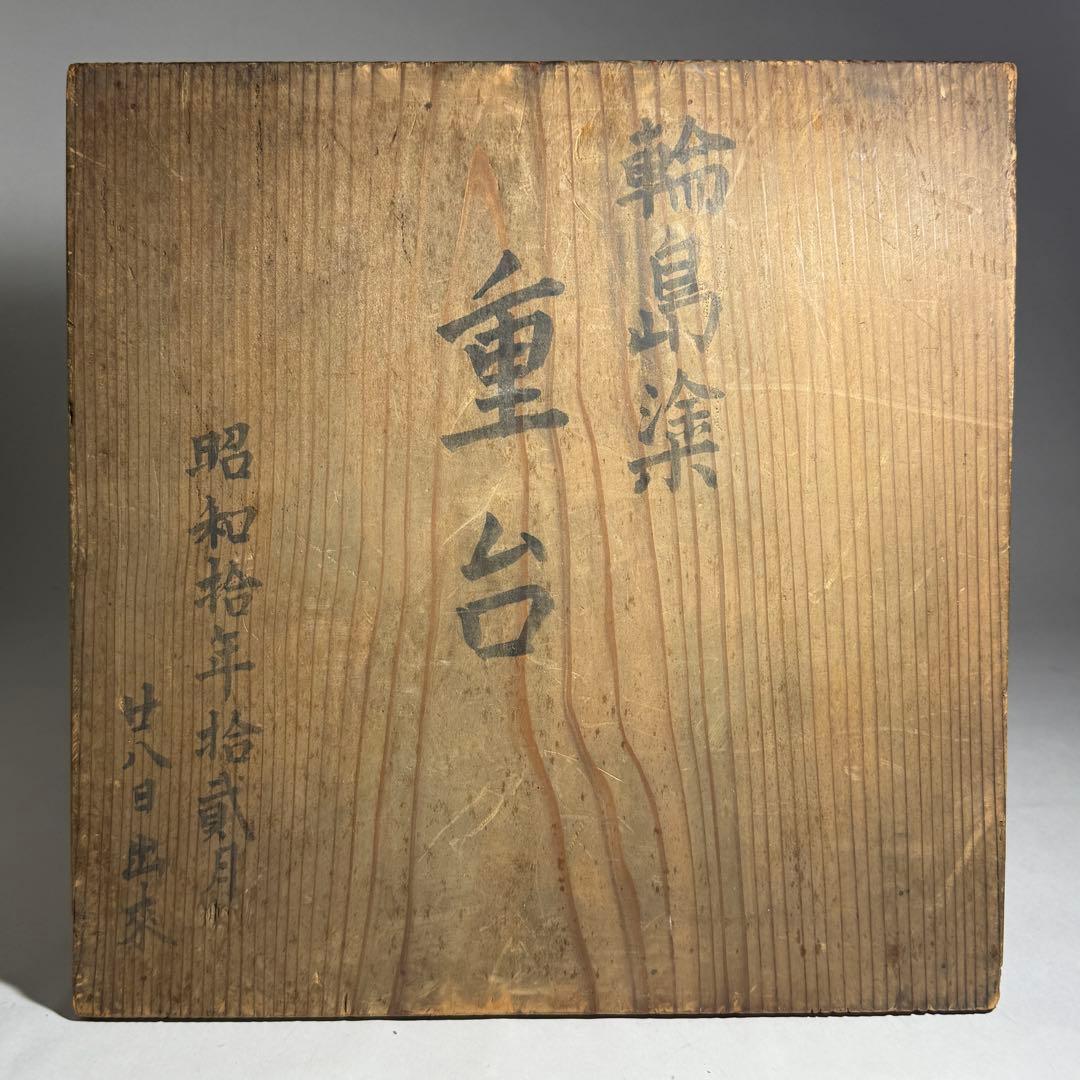 輪島塗
重台
昭和拾年拾貳月
廿八日出来